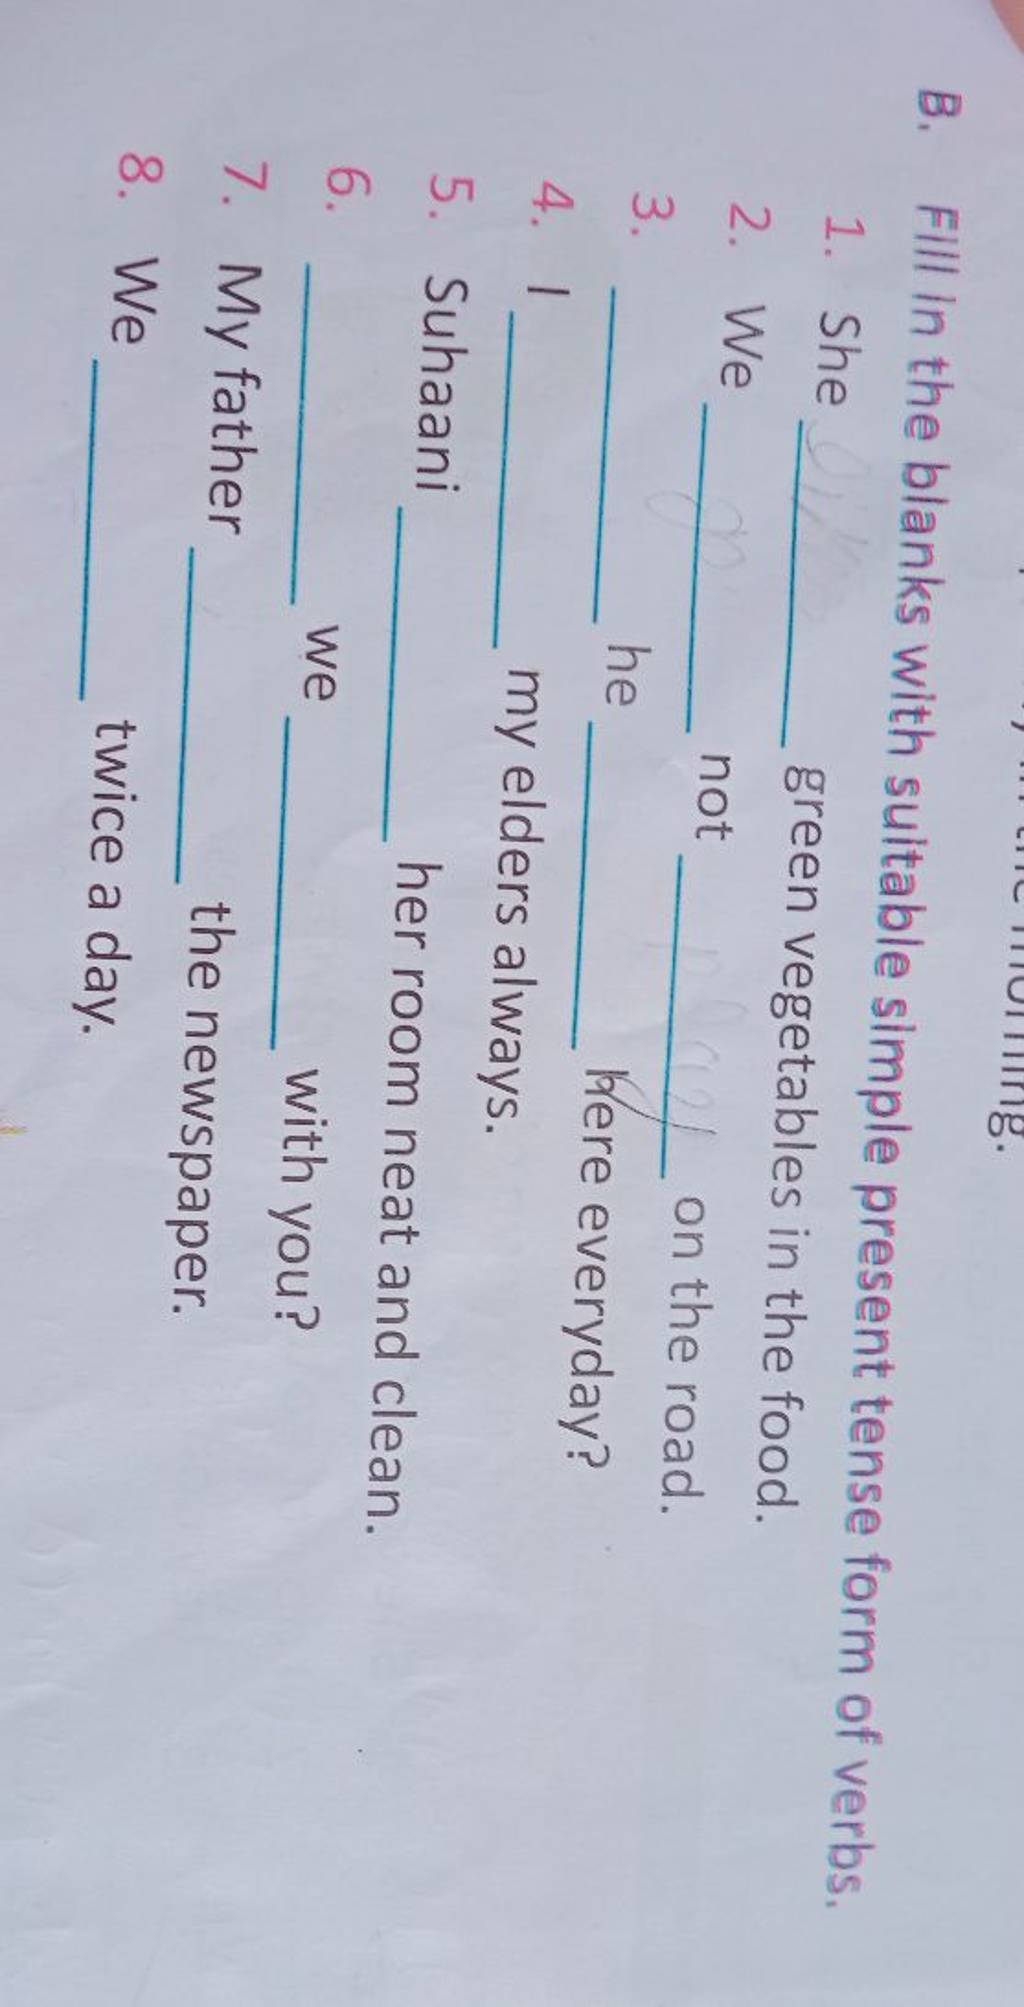 morning.
B. Fill in the blanks with suitable simple present tense form of verbs.
1. She ________ green vegetables in the food.
2. We ________ not ________ on the road.
3. ________ he ________ here everyday?
4. I ________ my elders always.
5. Suhaani ________ her room neat and clean.
6. ________ we ________ with you?
7. My father ________ the newspaper.
8. We ________ twice a day.